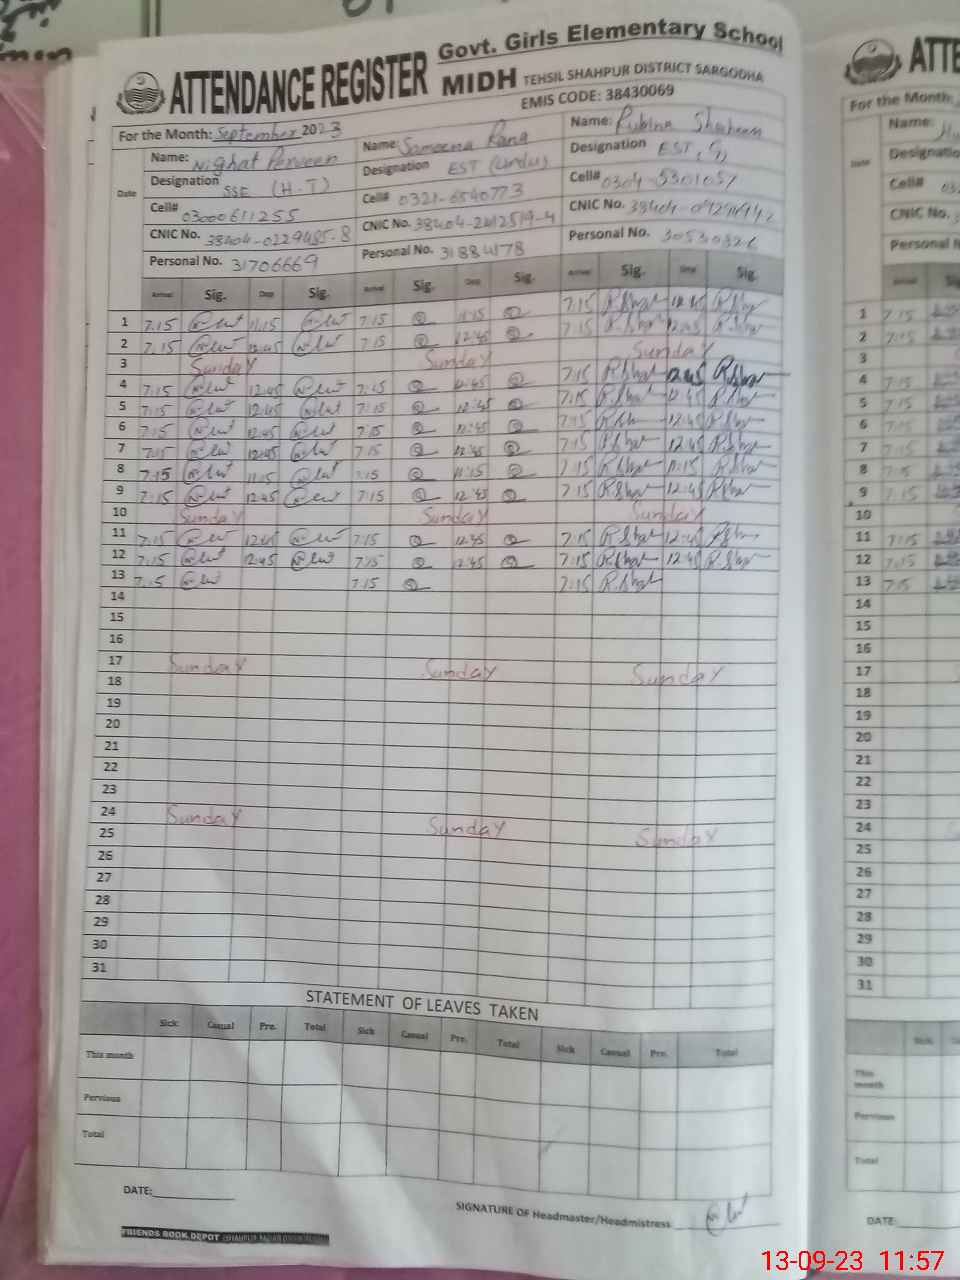 Govt. Girls Elementary School
ATTENDANCE REGISTER MIDH TEHSIL SHAHPUR DISTRICT SARGODHA
EMIS CODE: 38430069
For the Month: September 2023
Name: Nighat Perveen Name: Sameena Rana Name: Rubina Shaheen
Date Designation SSE (H.T) Designation EST (Urdu) Designation EST
Cell# 03000611255 Cell# 0321-6540773 Cell# 0304-5301057
CNIC No. 38404-0229485-8 CNIC No. 38404-2412519-4 CNIC No.
Personal No. 31706669 Personal No. 31884178 Personal No.
Arrival Sig. Dep Sig. Arrival Sig. Dep Sig. Arrival Sig. Sig.
1 7.15 11.15 7.15 11.15 7.15
2 7.15 12.45 7.15 12.45 7.15 12.45
3 Sunday Sunday Sunday
4 7.15 12.45 7.15 12.45 7.15 12.45
5 7.15 12.45 7.15 12.45 7.15 12.45
6 7.15 12.45 7.15 12.45 7.15 12.45
7 7.15 12.45 7.15 12.45 7.15 12.45
8 7.15 11.15 7.15 11.15 7.15 11.15
9 7.15 12.45 7.15 12.45 7.15 12.45
10 Sunday Sunday Sunday
11 7.15 12.45 7.15 12.45 7.15 12.45
12 7.15 12.45 7.15 12.45 7.15 12.45
13 7.15 7.15 7.15
14
15
16
17 Sunday Sunday Sunday
18
19
20
21
22
23
24 Sunday Sunday Sunday
25
26
27
28
29
30
31
STATEMENT OF LEAVES TAKEN
Sick Casual Pre. Total Sick Casual Pre. Total Sick Casual Pre. Total
This month
Pervious
Total
DATE:
SIGNATURE OF Headmaster/Headmistress
FRIENDS BOOK DEPOT
ATTE
For the Month:
Name:
Date Designation
Cell# 03
CNIC No.
Personal N
1 7.15
2 7.15
3
4 7.15
5 7.15
6 7.15
7 7.15
8 7.15
9 7.15
10
11 7.15
12 7.15
13 7.15
14
15
16
17
18
19
20
21
22
23
24
25
26
27
28
29
30
31
Sick
This month
Pervious
Total
DATE:
13-09-23 11:57